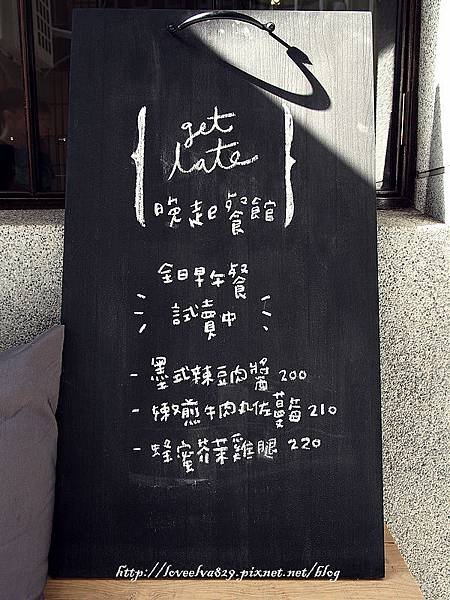 get
late
晚起e餐館
全日早午餐
試賣中
- 墨式辣豆肉醬 200
- 嫩煎牛肉丸佐蔓莓 210
- 蜂蜜芥茉雞腿 220
http://loveelva829.pixnet.net/blog